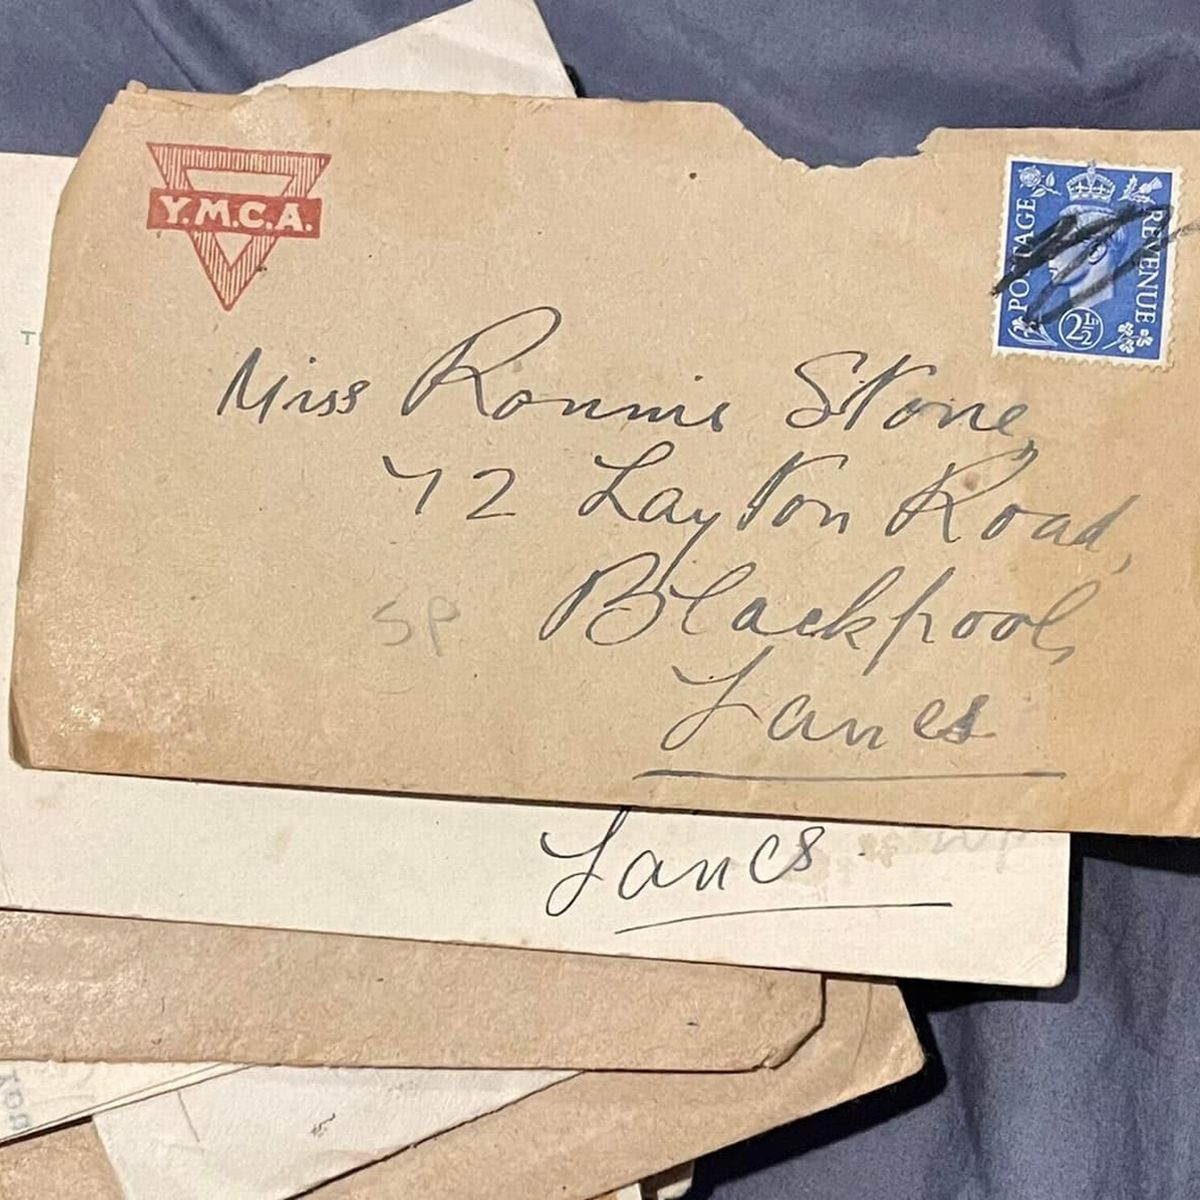 Y.M.C.A.
POSTAGE REVENUE
2½D
Miss Ronnie Stone,
72 Layton Road,
Blackpool,
Lancs
SP
Lancs.